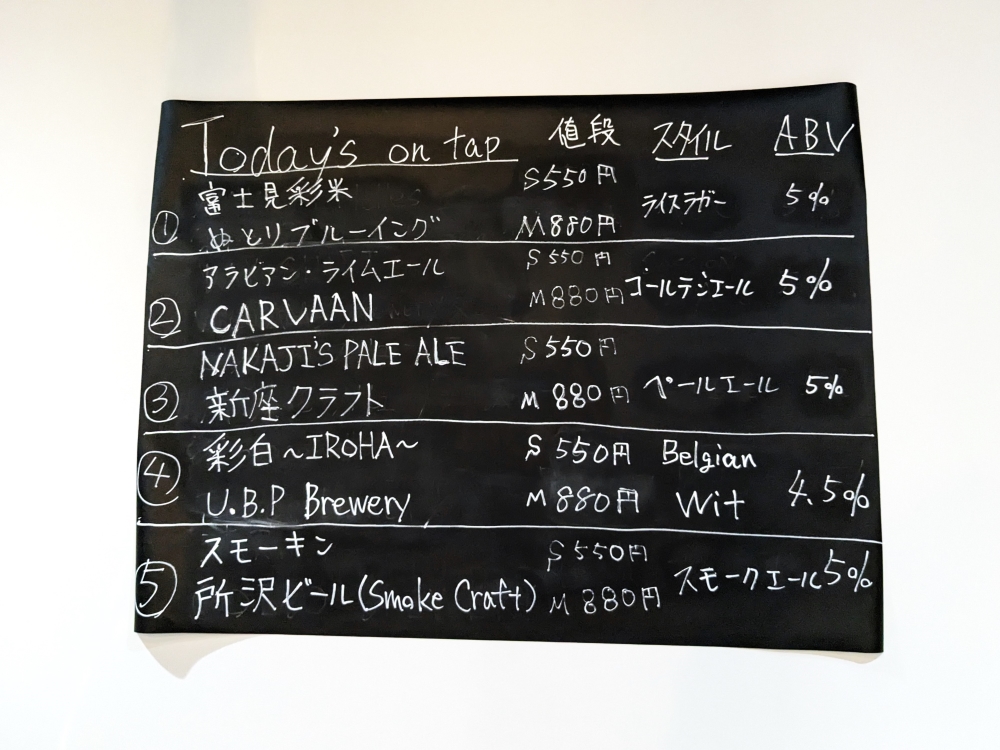 Today's on tap 値段 スタイル ABV
① 富士見彩米 S550円 ライスラガー 5%
ぬとりブルーイング M880円
② アラビアン・ライムエール S550円 ゴールデンエール 5%
CARVAAN M880円
③ NAKAJI'S PALE ALE S550円 ペールエール 5%
新座クラフト M880円
④ 彩白～IROHA～ S550円 Belgian 4.5%
U.B.P Brewery M880円 Wit
⑤ スモーキン S550円 スモークエール 5%
所沢ビール(Smoke Craft) M880円